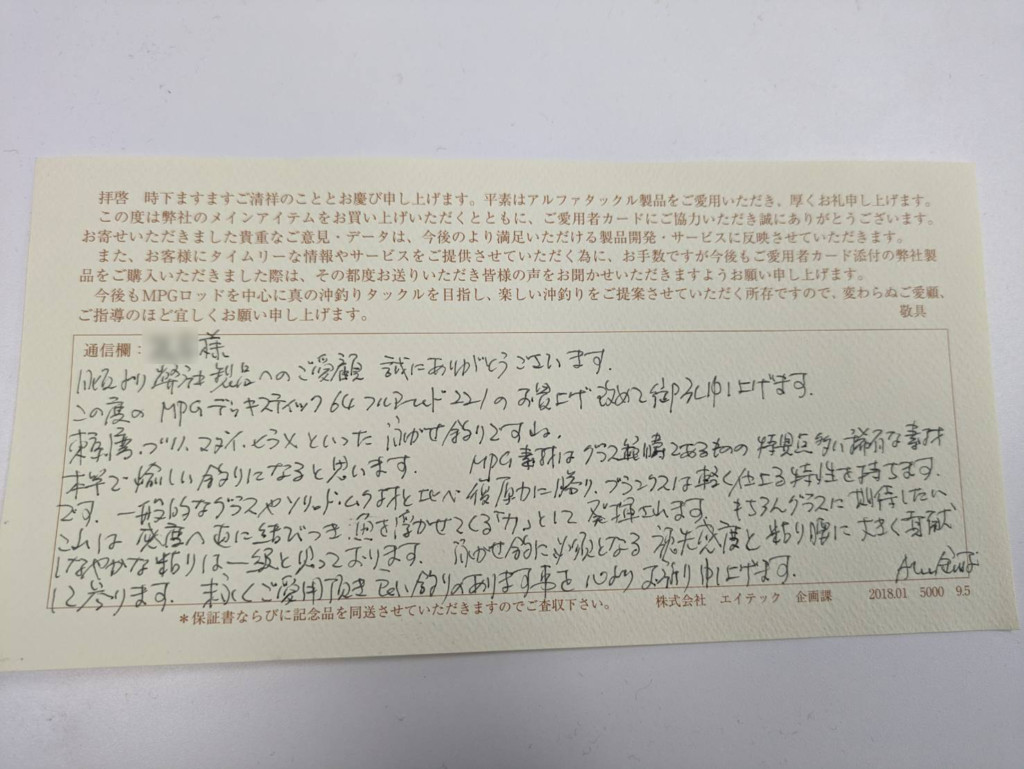 拝啓　時下ますますご清祥のこととお慶び申し上げます。平素はアルファタックル製品をご愛用いただき、厚くお礼申し上げます。
この度は弊社のメインアイテムをお買い上げいただくとともに、ご愛用者カードにご協力いただき誠にありがとうございます。
お寄せいただきました貴重なご意見・データは、今後のより満足いただける製品開発・サービスに反映させていただきます。
また、お客様にタイムリーな情報やサービスをご提供させていただく為に、お手数ですが今後もご愛用者カード添付の弊社製
品をご購入いただきました際は、その都度お送りいただき皆様の声をお聞かせいただきますようお願い申し上げます。
今後もMPGロッドを中心に真の沖釣りタックルを目指し、楽しい沖釣りをご提案させていただく所存ですので、変わらぬご愛顧、
ご指導のほど宜しくお願い申し上げます。　敬具
通信欄：様
日頃より弊社製品へのご愛顧 誠にありがとうございます。
この度の MPGデッキスティック64 フルアームド221のお買上げ 改めて御礼申し上げます。
ブリ、マダイ、ヒラメといった 泳がせ釣りですね。
本竿で愉しい釣りになると思います。 MPG素材はグラス範疇であるものの 特異点多い稀有な素材
です。一般的なグラスやソリッド・ムク材と比べ 復元力に勝り、ブランクスは軽く仕上る特性を持ちます。
これは 感度へ直に結びつき 魚を浮かせてくる「力」として 発揮されます。 もちろんグラスに期待したい
しなやかな粘りは一級と思っております。 泳がせ釣に必須となる 穂先感度と粘り腰に 大きく貢献
して参ります。 末永くご愛用頂き 良い釣りのあります事を 心よりお祈り申し上げます。
＊保証書ならびに記念品を同送させていただきますのでご査収下さい。　株式会社　エイテック　企画課　2018.01　5000　9.5